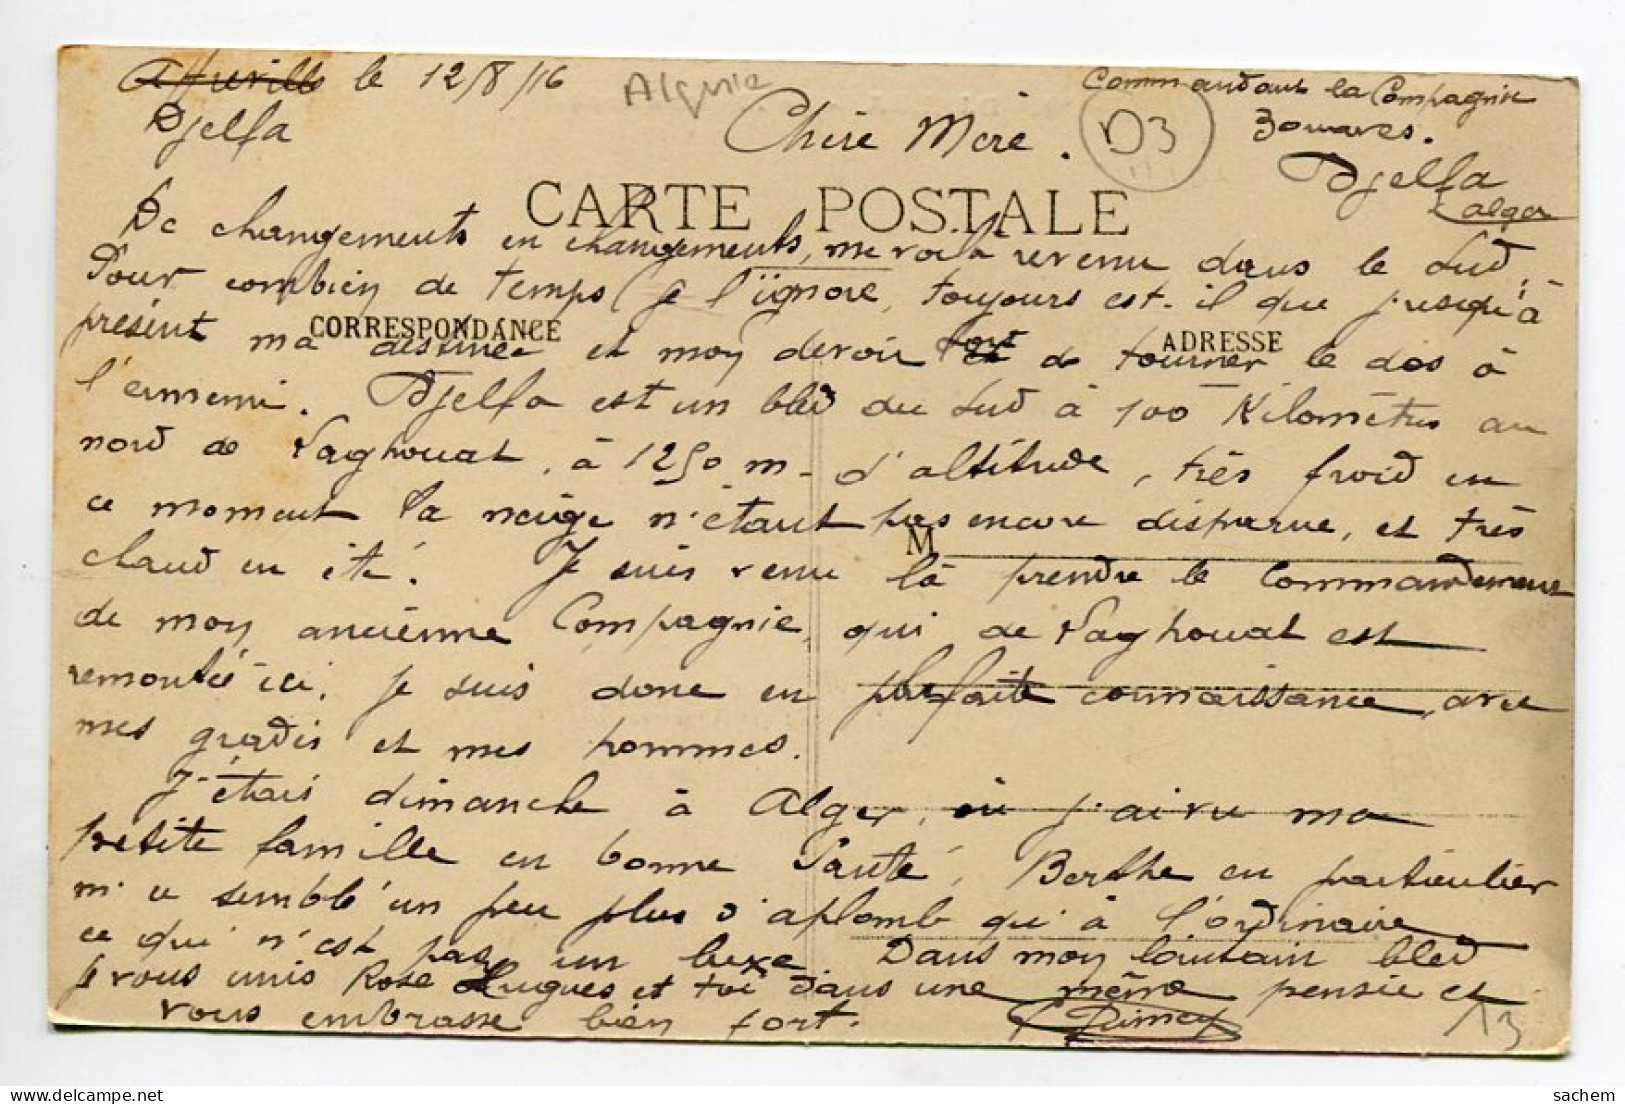 Affreville le 12/8/16
Algérie
Commandant la Compagnie
Djelfa
Chère Mère.
D3
Zouaves.
Djelfa
Alger
CARTE POSTALE
De changements en changements, me voilà revenu dans le Sud,
Pour combien de temps je l'ignore, toujours est-il que jusqu'à
CORRESPONDANCE
ADRESSE
présent ma destinée et mon devoir sont de tourner le dos à
l'ennemi. Djelfa est un bled du Sud à 100 Kilomètres au
nord de Laghouat, à 1250 m. d'altitude, très froid en
ce moment la neige n'étant pas encore disparue, et très
M
chaud en été. Je suis venu là prendre le commandement
de mon ancienne Compagnie, qui de Laghouat est
remontée ici, je suis donc en parfaite connaissance, avec
mes gradés et mes hommes.
J'étais dimanche à Alger, où j'ai vu ma
petite famille en bonne Santé, Berthe en particulier
m'a semblé un peu plus d'aplomb qu'à l'ordinaire,
ce qui n'est pas un luxe. Dans mon lointain bled
je vous unis Rose Hugues et toi dans une même pensée et
vous embrasse bien fort.
13
sachem